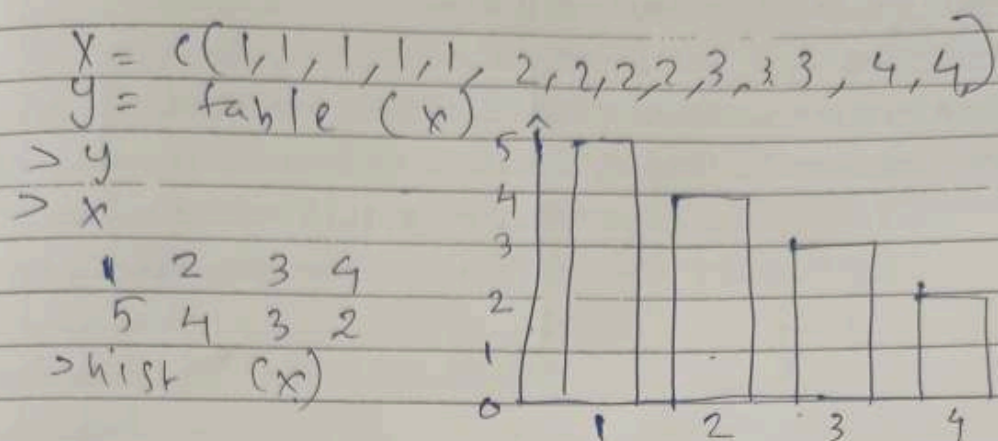 X = c(1,1,1,1,1,2,2,2,2,3,3,3,4,4)
y = table (x)
> y
> x
1 2 3 4
5 4 3 2
> hist (x)
5
4
3
2
1
0
1 2 3 4